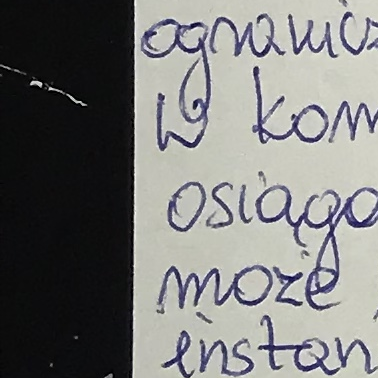 ogranicz
w kom
osiąga
może
instan